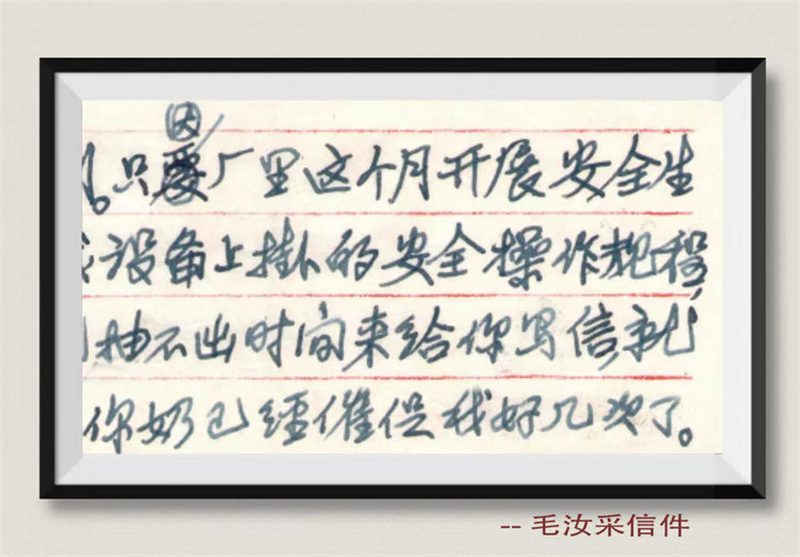 。只因厂里这个月开展安全生
设备上挂的安全操作规程，
抽不出时间来给你写信就
你奶已经催促我好几次了。
-- 毛汝采信件